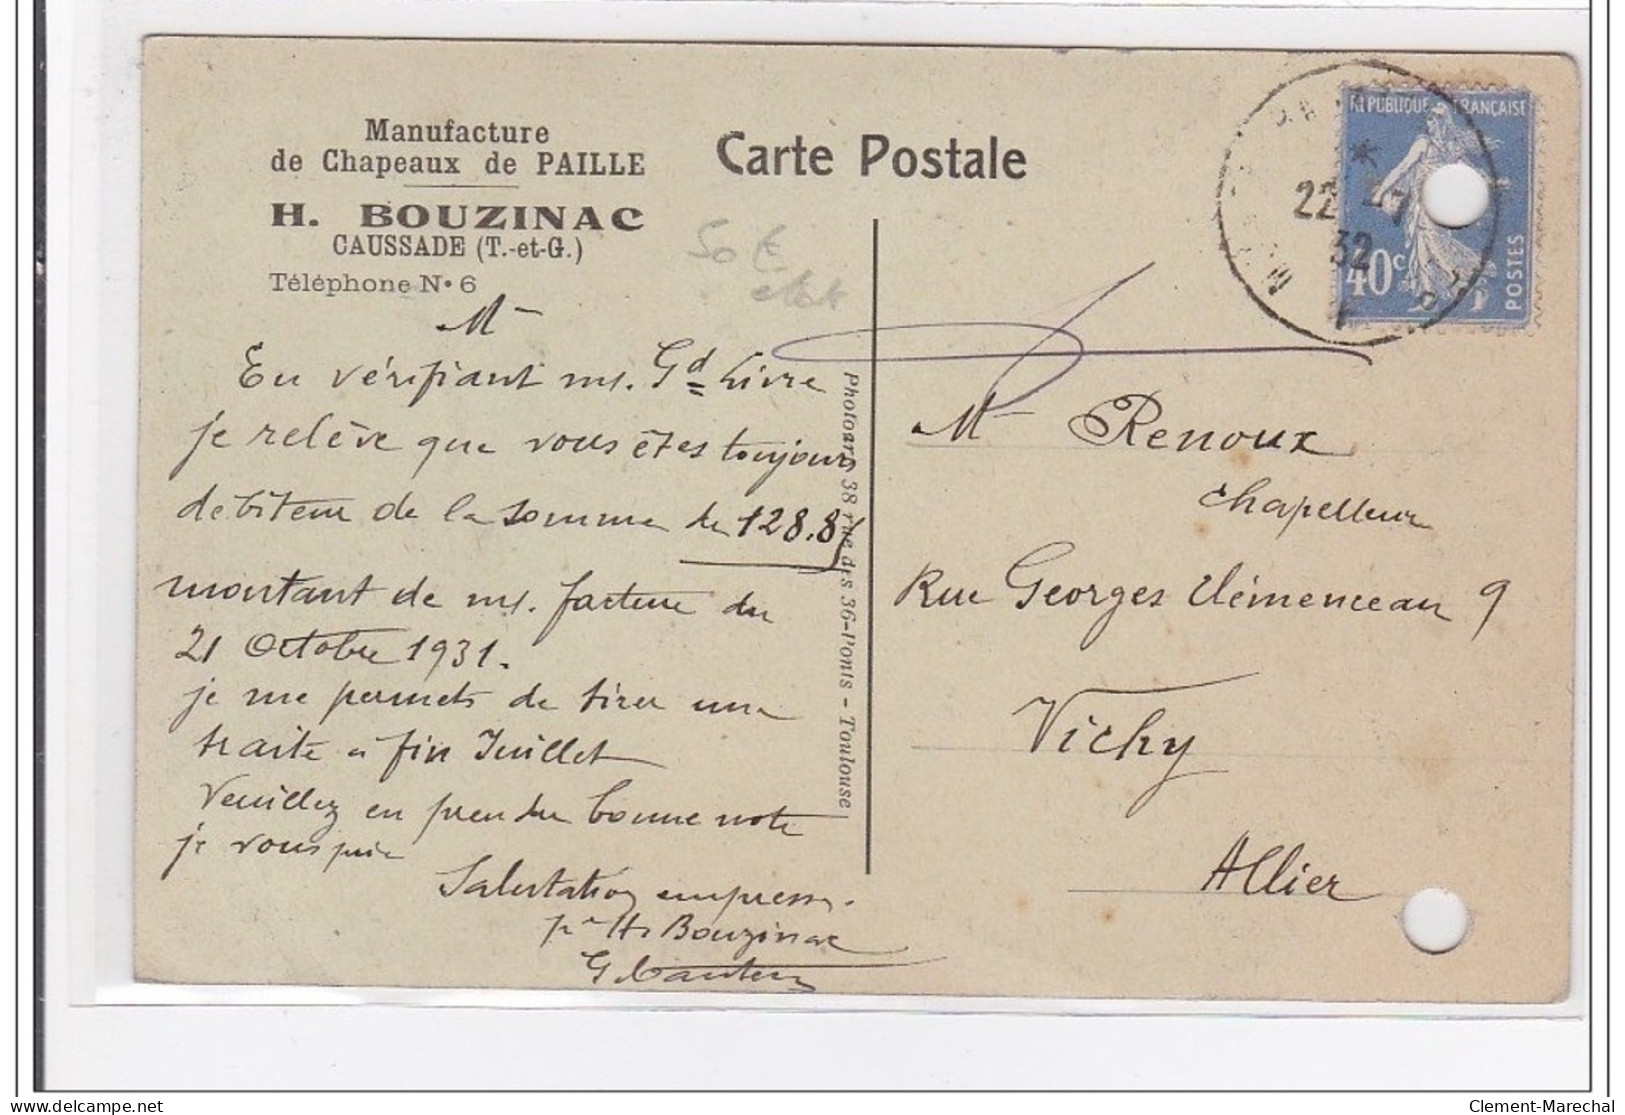 Manufacture
de Chapeaux de PAILLE
H. BOUZINAC
CAUSSADE (T.-et-G.)
Téléphone N° 6
Carte Postale
RÉPUBLIQUE FRANÇAISE
40c
POSTES
22 - 7
32
50 E
Mr
En vérifiant m/. Gd Livre
je relève que vous êtes toujours
debiteur de la somme de 128.85
montant de m/. facture du
21 Octobre 1931.
je me permets de tirer une
traite à fin Juillet
Veuillez en prendre bonne note
je vous prie
Salutation empress.
pr H. Bouzinac
Photogars 38 rue des 36-Ponts - Toulouse
Mr Renoux
Chapelleur
Rue Georges Clémenceau 9
Vichy
Allier
delcampe.net
Clement-Marechal